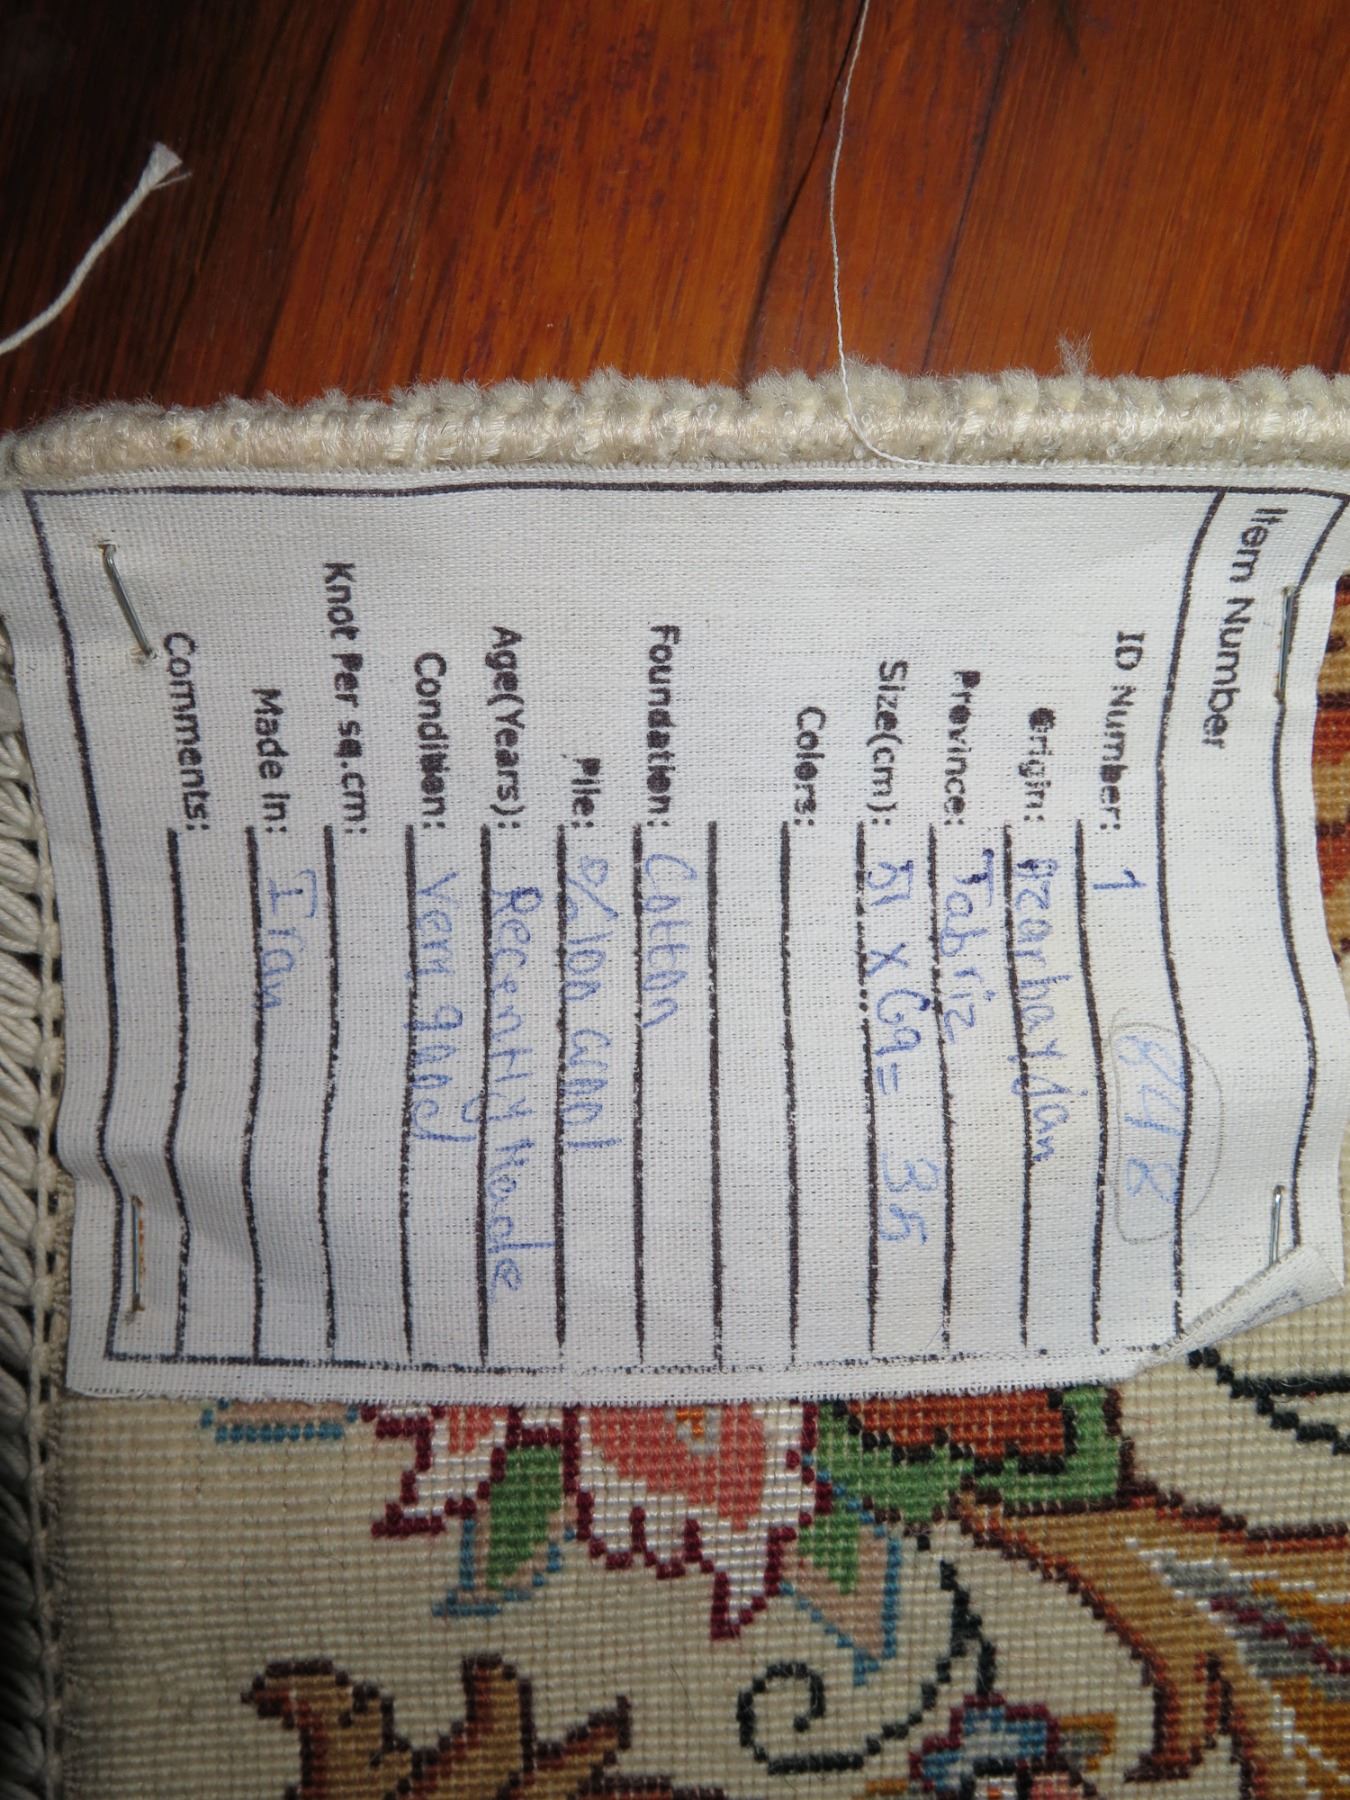 Item Number
ID Number: 1 848
Origin: Azarbayjan
Province: Tabriz
Size(cm): 51 x 69 = 35
Colors:
Foundation: Cotton
Pile: %100 wool
Age(Years): Recently Made
Condition: Very good
Knot Per sq.cm:
Made in: Iran
Comments: